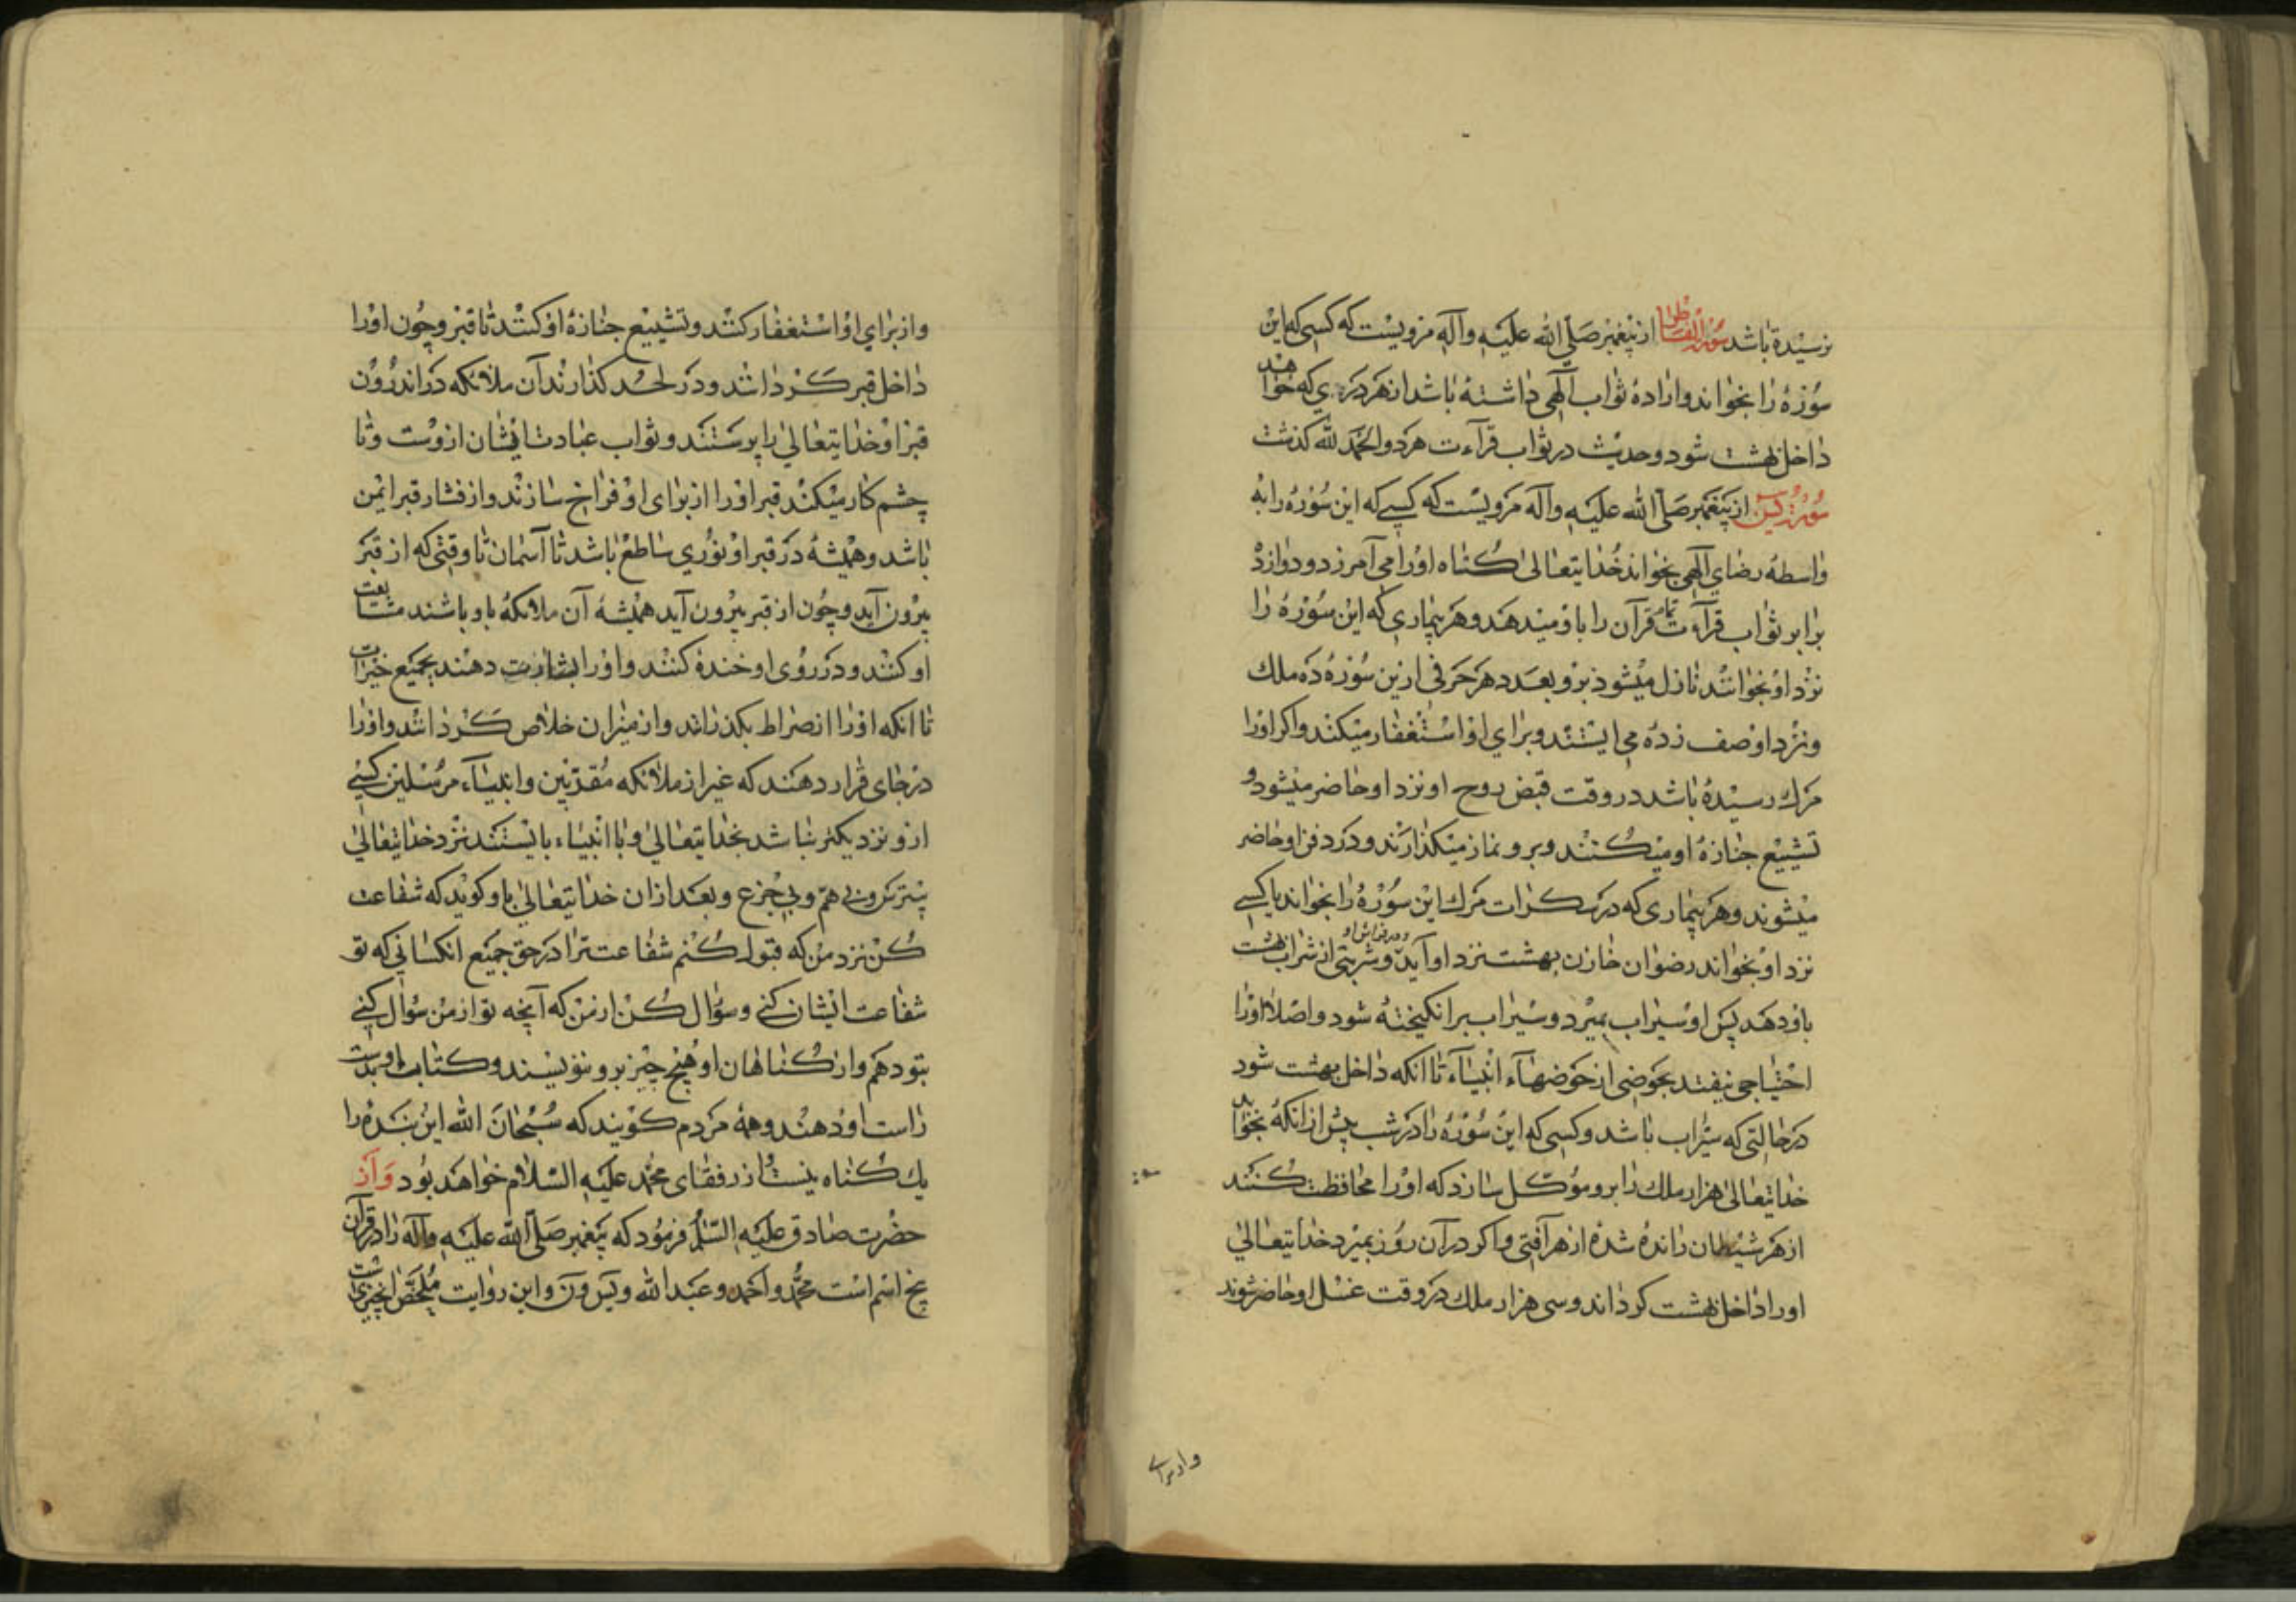 نرسیده باشد سورة الفاطر از پیغمبر صلّی الله علیه وآله مرویست که کسی که این
سوره را بخواند واراده ثواب الهی داشته باشد از هر دری که خواهد
داخل بهشت شود وحدیث در ثواب قرآءت هر دو الحمد لله کذشت
سورة یس از پیغمبر صلّی الله علیه وآله مرویست که کسی که این سوره را به
واسطه رضای الهی بخواند خدایتعالی کناه اورا می آمرزد ودوازده
برابر ثواب قرآءت تمام قرآن را باو میدهد وهر بیماری که این سوره را
نزد او بخوانند نازل میشود برو بعدد هر حرفی ازین سوره ده ملك
ونزد او صف زده می ایستند وبرای او استغفار میکنند واکر اورا
مرك رسیده باشد در وقت قبض روح او نزد او حاضر میشود و
تشییع جنازه او میکنند وبرو نماز میکذارند ودر دفن او حاضر
میشوند وهر بیماری که در سکرات مرك این سوره را بخواند یا کسی
نزد او بخواند رضوان خازن بهشت نزد او آید وشربتی از شراب بهشت
باو دهد پس او سیراب بمیرد وسیراب برانکیخته شود واصلا اورا
احتیاجی نیفتد بحوضی از حوضهاء انبیاء تا آنکه داخل بهشت شود
در حالتی که سیراب باشد وکسی که این سوره را در شب پیش از آنکه بخوابد
خدایتعالی هزار ملك را برو موکّل سازد که اورا محافظت کنند
از هر شیطان رانده شده از هر آفتی واکر در آن روز بمیرد خدایتعالی
اورا داخل بهشت کرداند وسی هزار ملك در وقت غسل او حاضر شوند
واز برای
واز برای او استغفار کنند وتشییع جنازه او کنند تا قبر وچون اورا
داخل قبر کردانند ودر لحد کذارند آن ملائکه در اندرون
قبر او خدایتعالی را پرستند وثواب عبادت ایشان از وست وتا
چشم کار میکند قبر اورا از برای او فراخ سازند واز فشار قبر ایمن
باشد وهمیشه در قبر او نوری ساطع باشد تا آسمان تا وقتی که از قبر
بیرون آید وچون از قبر بیرون آید همیشه آن ملائکه باو باشند متابعت
او کنند ودر روی او خنده کنند واورا بشارت دهند بجمیع خیرات
تا آنکه اورا از صراط بکذرانند واز میزان خلاص کردانند واورا
در جای قرار دهند که غیر از ملائکه مقربین وانبیاء مرسلین کسی
ازو نزدیکتر نباشد بخدایتعالی وبا انبیاء بایستند نزد خدایتعالی
بی هم وبی جزع وبعد ازان خدایتعالی باو کوید که شفاعت
کن نزد من که قبول کنم شفاعت ترا در حق جمیع آنکسانی که تو
شفاعت ایشان کنی وسؤال کن از من که آنچه تو از من سؤال کنی
بتو دهم واز کناهان او هیچ چیز برو ننویسند وکتاب او بدست
راست او دهند وهمه مردم کویند که سبحان الله این بنده را
یك کناه نیست واز رفقای محمد علیه السلام خواهد بود واز
حضرت صادق علیه السّلم فرمود که پیغمبر صلّی الله علیه وآله را در قرآن
پنج اسم است محمّد واحمد وعبد الله ویس ون واین روایت ملخّص آنچیزیست